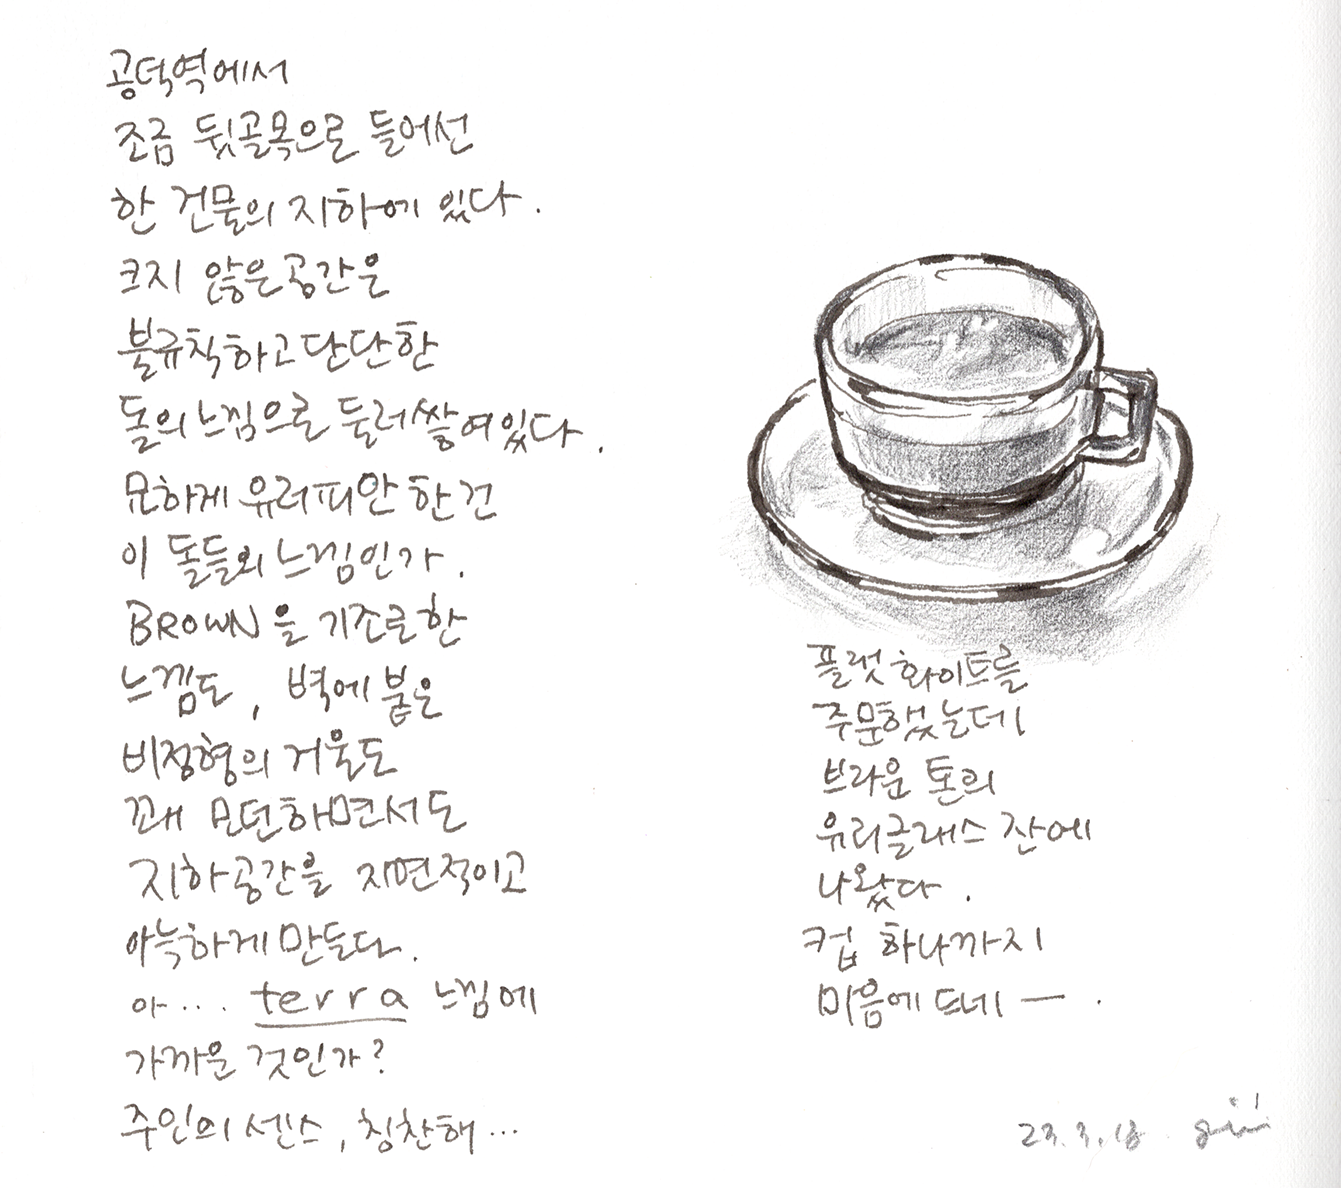 공덕역에서
조금 뒷골목으로 들어선
한 건물의 지하에 있다.
크지 않은 공간은
불규칙하고 단단한
돌의 느낌으로 둘러쌓여있다.
묘하게 유러피안 한 건
이 돌들의 느낌인가.
BROWN을 기조로한
느낌도, 벽에 붙은
비정형의 거울도
꽤 모던하면서도
지하공간을 자연적이고
아늑하게 만든다.
아.... terra 느낌에
가까운 것인가?
주인의 센스, 칭찬해...
플랫 화이트를
주문했는데
브라운 톤의
유리글래스 잔에
나왔다.
컵 하나까지
마음에 드네 — .
23.3.18